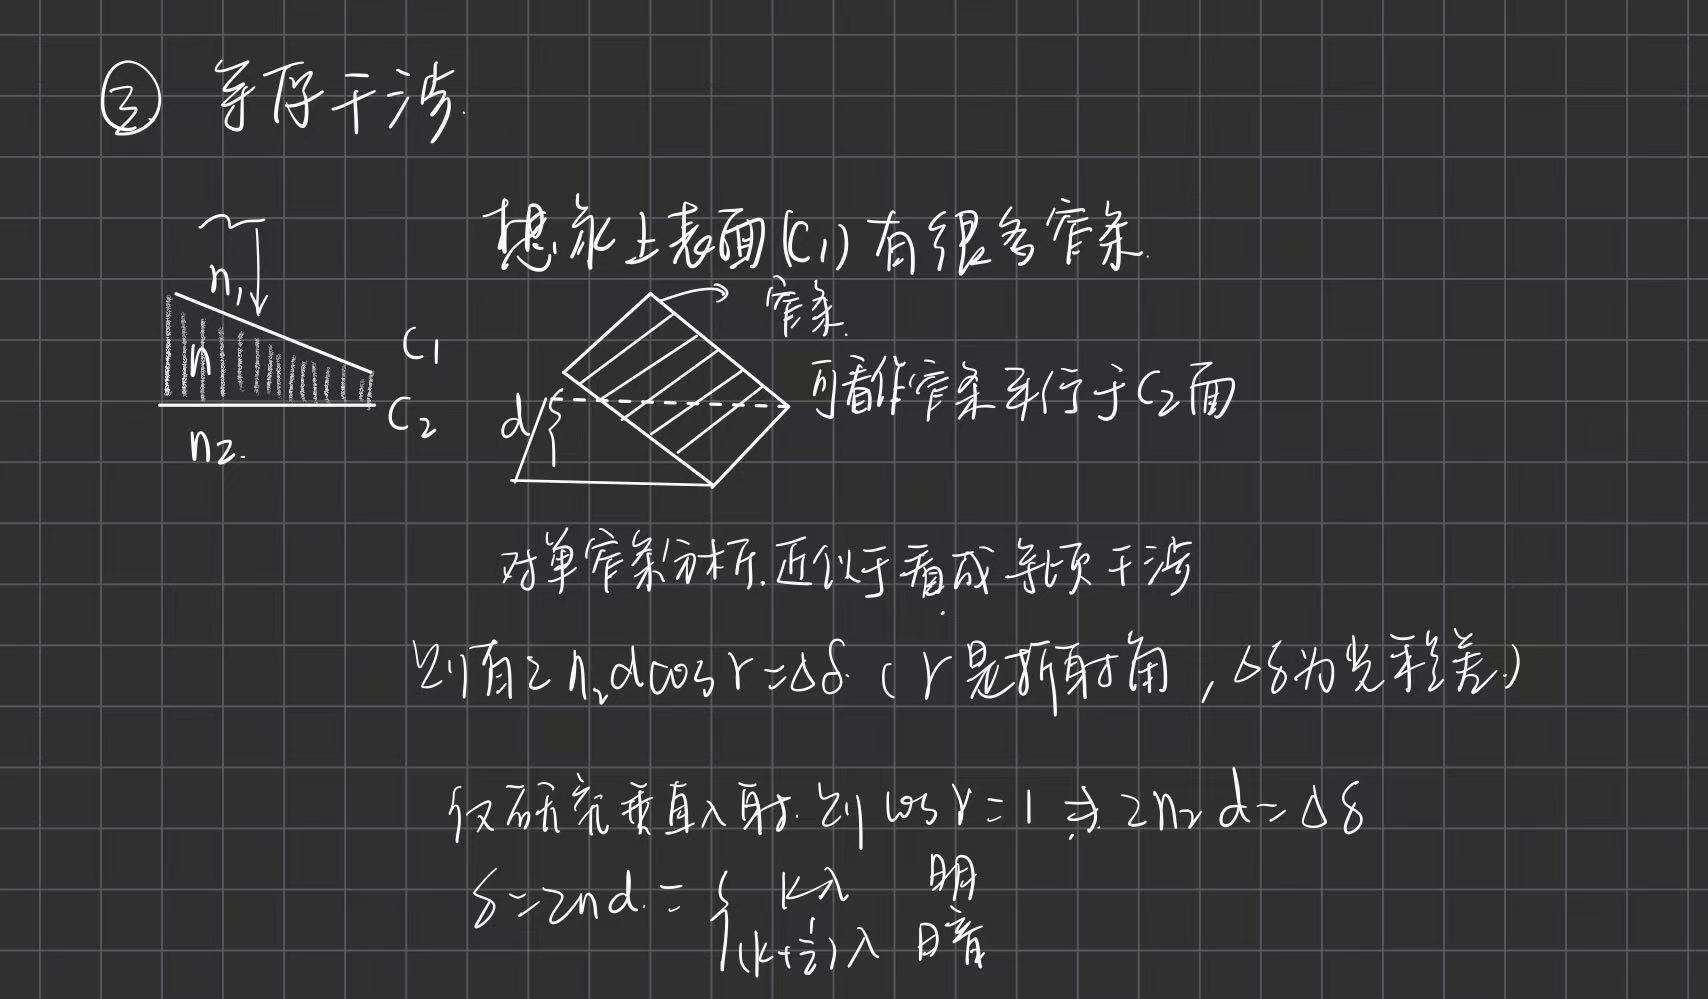 ② 等厚干涉.
想象上表面(C₁)有很多窄条.
n₁
n
C₁
C₂
n₂.
窄条.
d
可看作窄条平行于C₂面
对单窄条分析.近似于看成等倾干涉
则有2n₂dcosr=Δδ.(r是折射角,Δδ为光程差.)
仅研究垂直入射.则cosr=1 ⇒ 2n₂d=Δδ
δ=2nd.={ kλ 明
(k+½)λ 暗